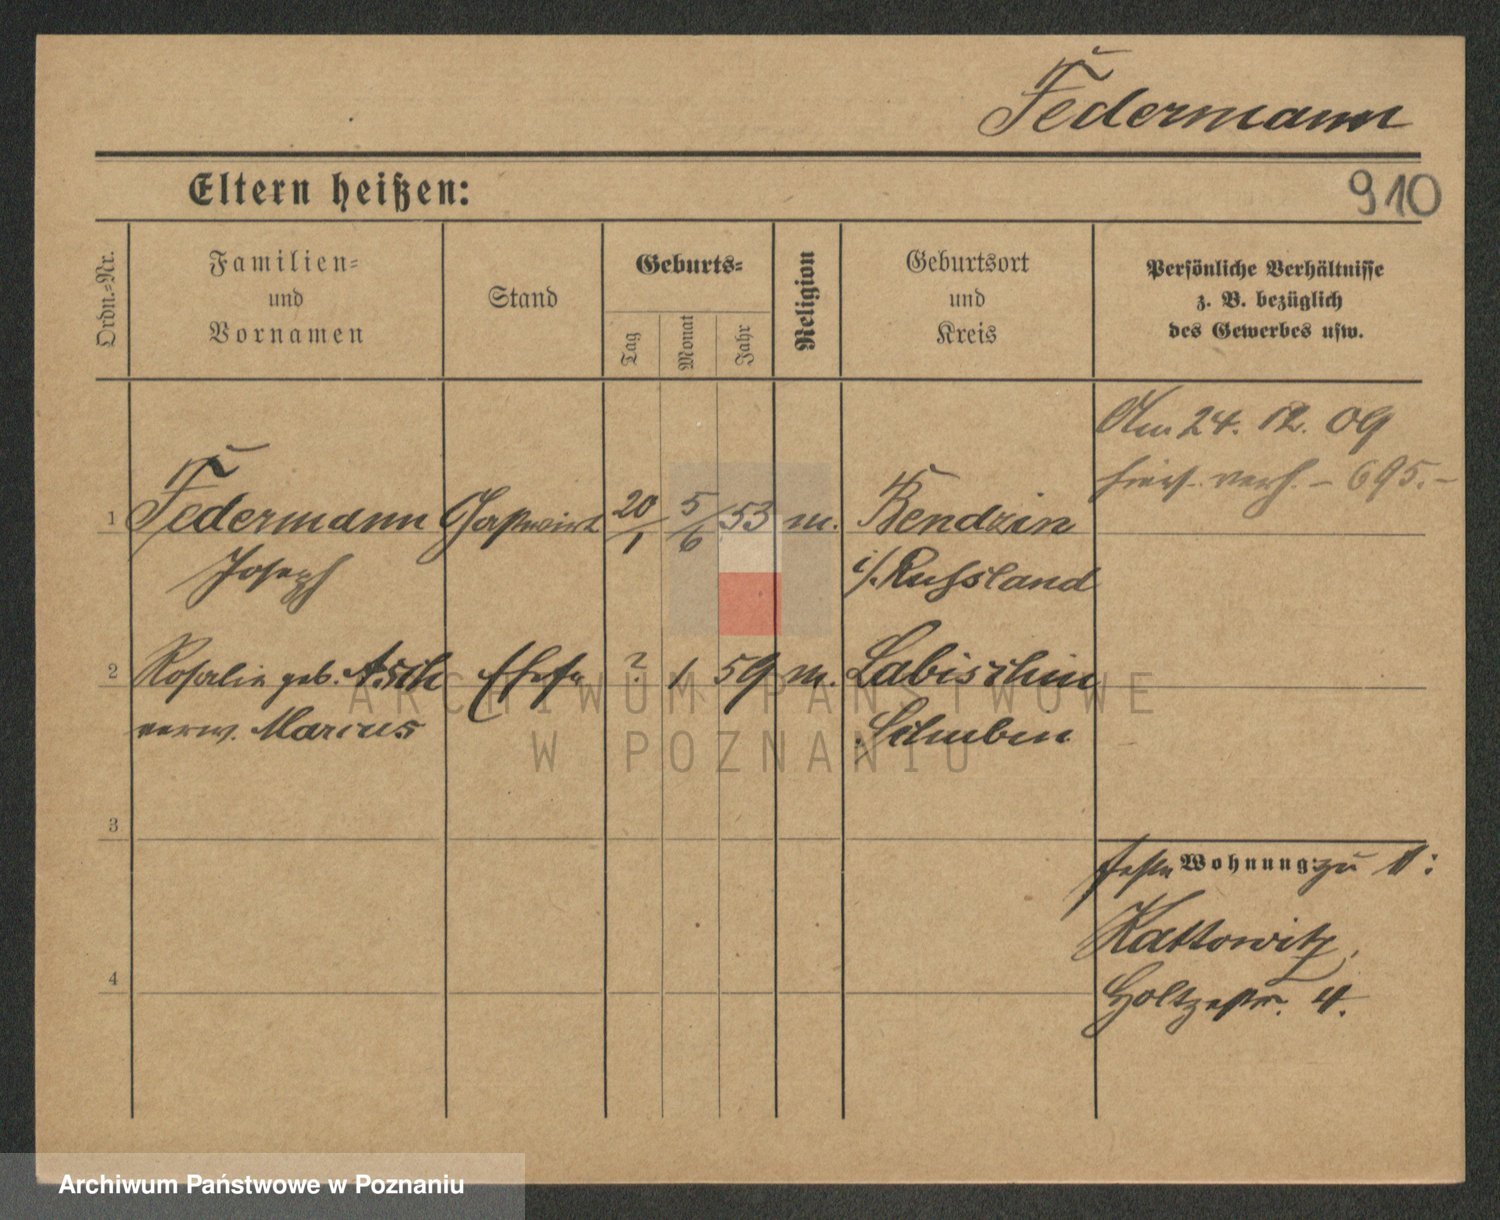 Federmann
Eltern heißen:
910
Ordn.-Nr.
Familien-
und
Vornamen
Stand
Geburts-
Tag
Monat
Jahr
Religion
Geburtsort
und
Kreis
Persönliche Verhältnisse
z. B. bezüglich
des Gewerbes usw.
Am 24. 12. 09
hier verh. – 695. –
1 Federmann Gastwirt 20/1 5/6 53 m. Bendzin
Joseph i/. Russland
2 Rosalie geb. Asch Ehefr ? 1 59 m. Labischin
verw. Marcus Schubin
3
feste Wohnung: zu 1:
Kattowitz,
Holtzestr. 4.
4
ARCHIWUM PAŃSTWOWE
W POZNANIU
Archiwum Państwowe w Poznaniu